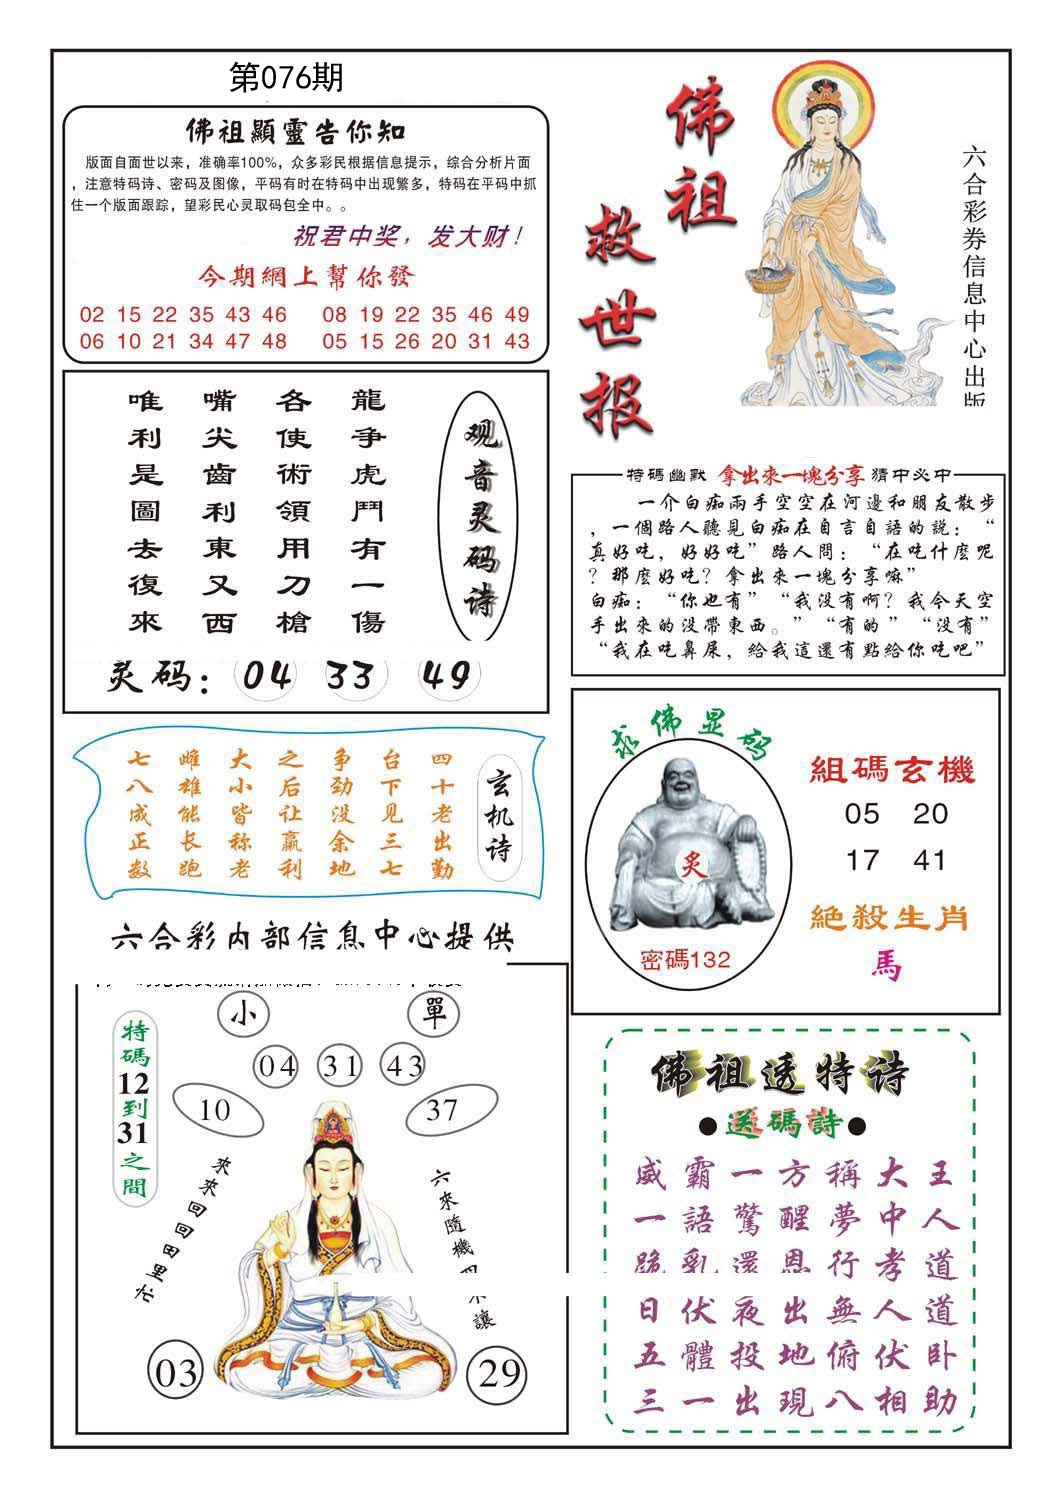 第076期
佛祖顯靈告你知
版面自面世以来，准确率100%，众多彩民根据信息提示，综合分析片面
，注意特码诗、密码及图像，平码有时在特码中出现繁多，特码在平码中抓
住一个版面跟踪，望彩民心灵取码包全中。。
祝君中奖，发大财！
今期網上幫你發
02 15 22 35 43 46 08 19 22 35 46 49
06 10 21 34 47 48 05 15 26 20 31 43
佛祖
救世报
六合彩券信息中心出版
观音灵码诗
龍爭虎鬥有一傷
各使術領用刀槍
嘴尖齒利東又西
唯利是圖去復來
灵码：04 33 49
特碼幽默 拿出來一塊分享 猜中必中
一介白痴兩手空空在河邊和朋友散步
，一個路人聽見白痴在自言自語的說：“
真好吃，好好吃”路人問：“在吃什麼呢
？那麼好吃？拿出來一塊分享嘛”
白痴：“你也有”“我没有啊？我今天空
手出來的没帶東西。”“有的”“没有”
“我在吃鼻屎，給我這還有點給你吃吧”
玄机诗
四十老出勤
台下见三七
争劲没余地
之后让赢利
大小皆称老
雌雄能长跑
七八成正数
求佛显码
炙
密碼132
組碼玄機
05 20
17 41
絕殺生肖
馬
六合彩内部信息中心提供
小 單
04 31 43
10 37
特碼12到31之間
來來回回田里忙
六來隨機 讓
03 29
佛祖透特诗
●送碼詩●
威霸一方稱大王
一語驚醒夢中人
跪乳還恩行孝道
日伏夜出無人道
五體投地俯伏卧
三一出現八相助